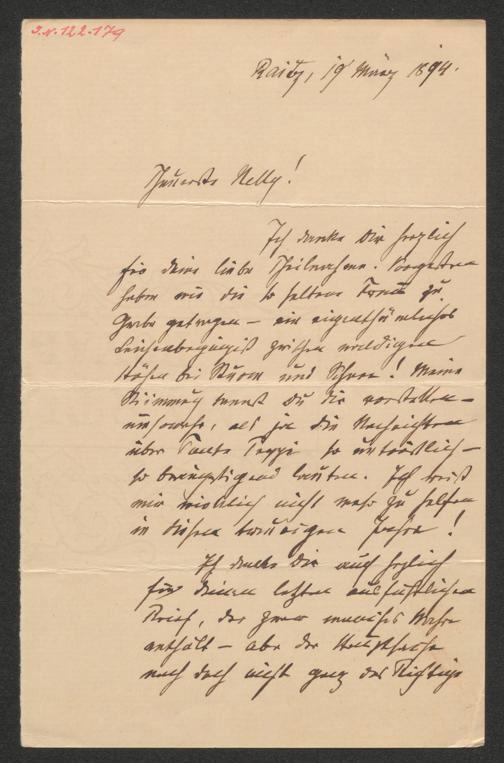 J.N. 122.179
Raitz, 19 März 1894.
Theuerste Nelly!
Ich danke Dir herzlich
für deine liebe Theilnahme. Vorgestern
haben wir die so seltene Frau zu
Grabe getragen – ein eigenthümliches
Leichenbegängniß zwischen waldigen
Höhen bei Sturm und Schnee! Meine
Stimmung kannst Du dir vorstellen –
umsomehr, als ja die Nachrichten
über Tante Peppi so untröstlich –
so beängstigend lauten. Ich weiß
mir wirklich nicht mehr zu helfen
in diesem traurigen Jahre!
Ich danke Dir auch herzlich
für deinen letzten ausführlichen
Brief, der zwar manches Wahre
enthält – aber der Hauptsache
nach doch nicht ganz das Richtige